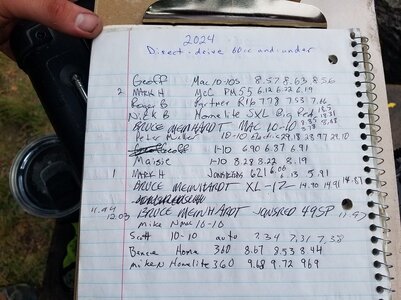 2024
Direct-drive 60cc and under
Geoff Mac 10-10s 8.57 8.63 8.56
2 MARK H McC PM55 6.12 6.22 6.19
Roger B Partner R16 7.78 7.53 7.16
Nick B Homelite SXL Big Red
BRUCE MEINHARDT MAC 10-10 8.83
Peter 10-10 29.18 23.97 29.10
1-10 6.90 6.37 6.91
Maisie 1-10 8.28 8.22 8.19
1 MARK H JONSEREDS 621 6.06 6.13 5.91
BRUCE MEINHARDT XL-12 14.90 14.91 14.87
12.03 BRUCE MEINHARDT JONSRED 49SP 11.97
Mike N 10-10
Scott 10-10 auto 7.34 7.31 7.38
Bernie Home 360 8.67 8.53 8.44
Mike N Homelite 360 9.68 9.72 9.69